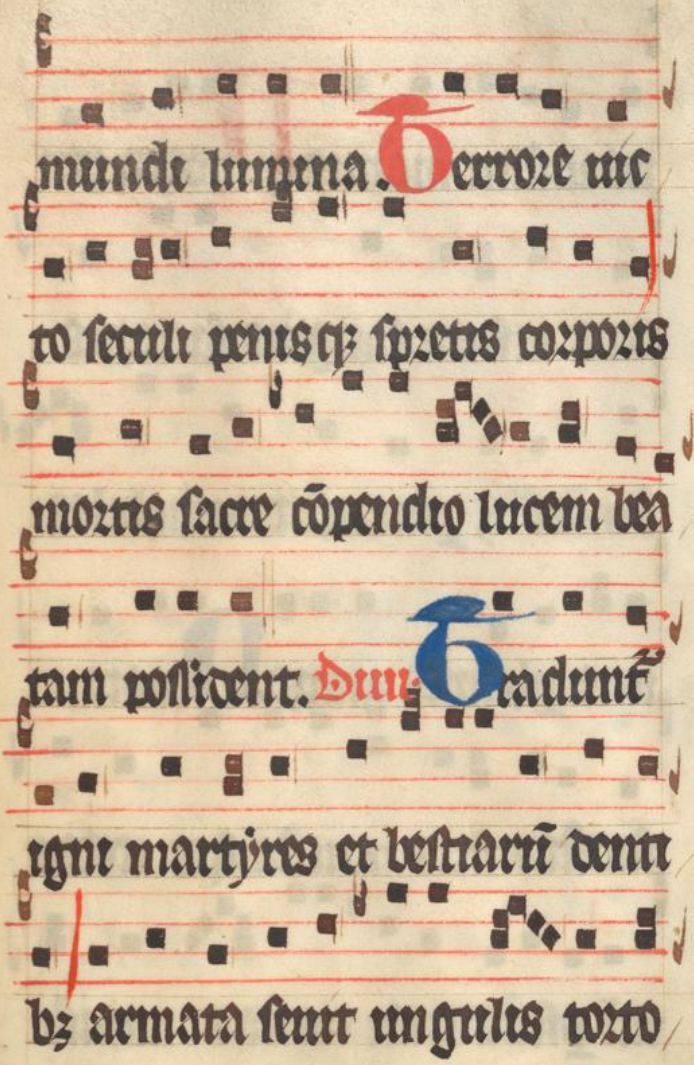 mundi lumina. Terrore uic
to seculi penisqꝫ spretis corporis
mortis sacre cōpendio lucem bea
tam possident. Diui. Tradunt᷑
igni martÿres et bestiarū denti
bꝫ armata seuit ungulis torto